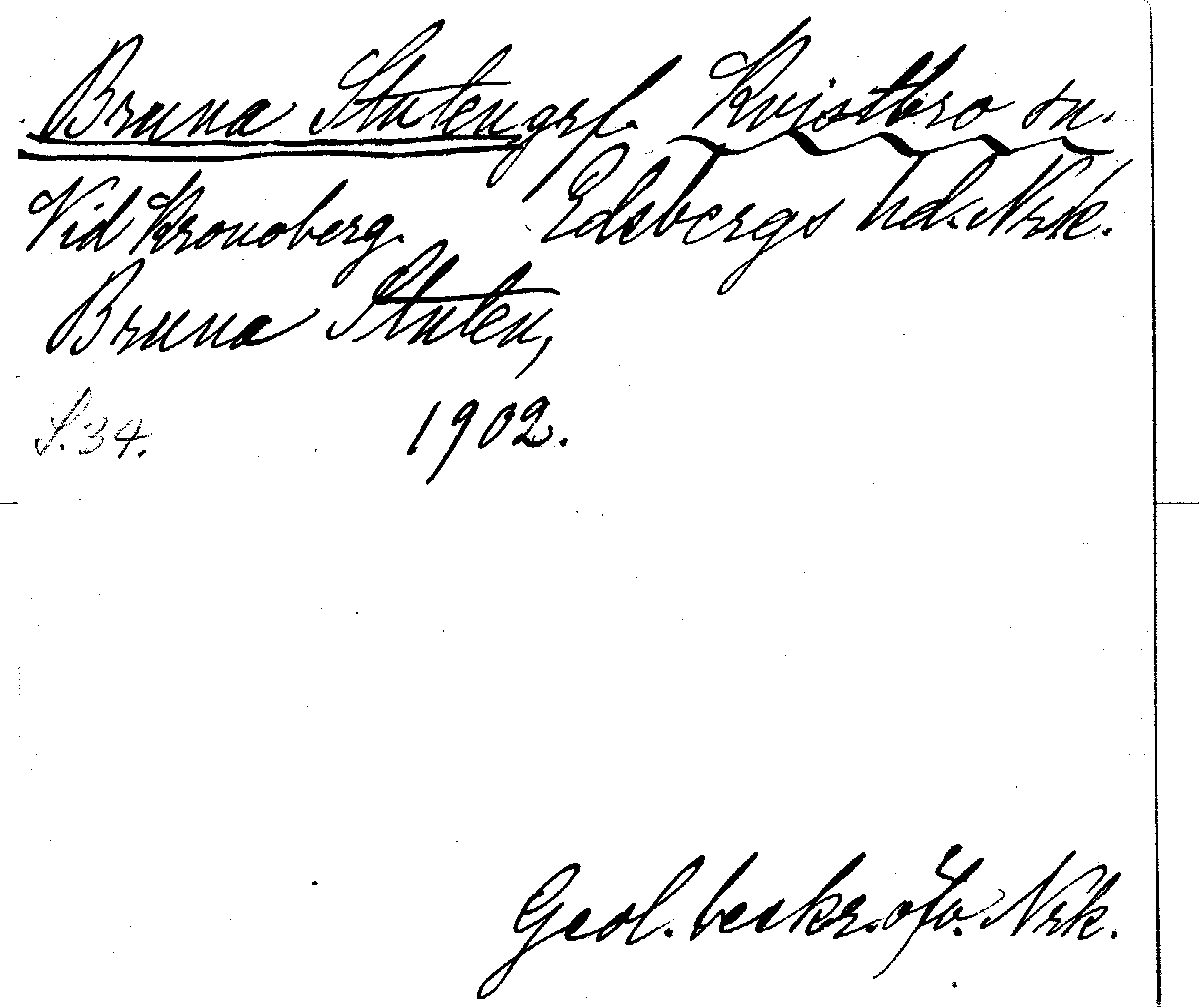 Bruna Stuten grf. Kvistbro sn.
Vid Kronoberg. Edsbergs hd. Nrk.
Bruna Stuten,
S. 34. 1902.
Geol. beskr. öfv. Nrk.